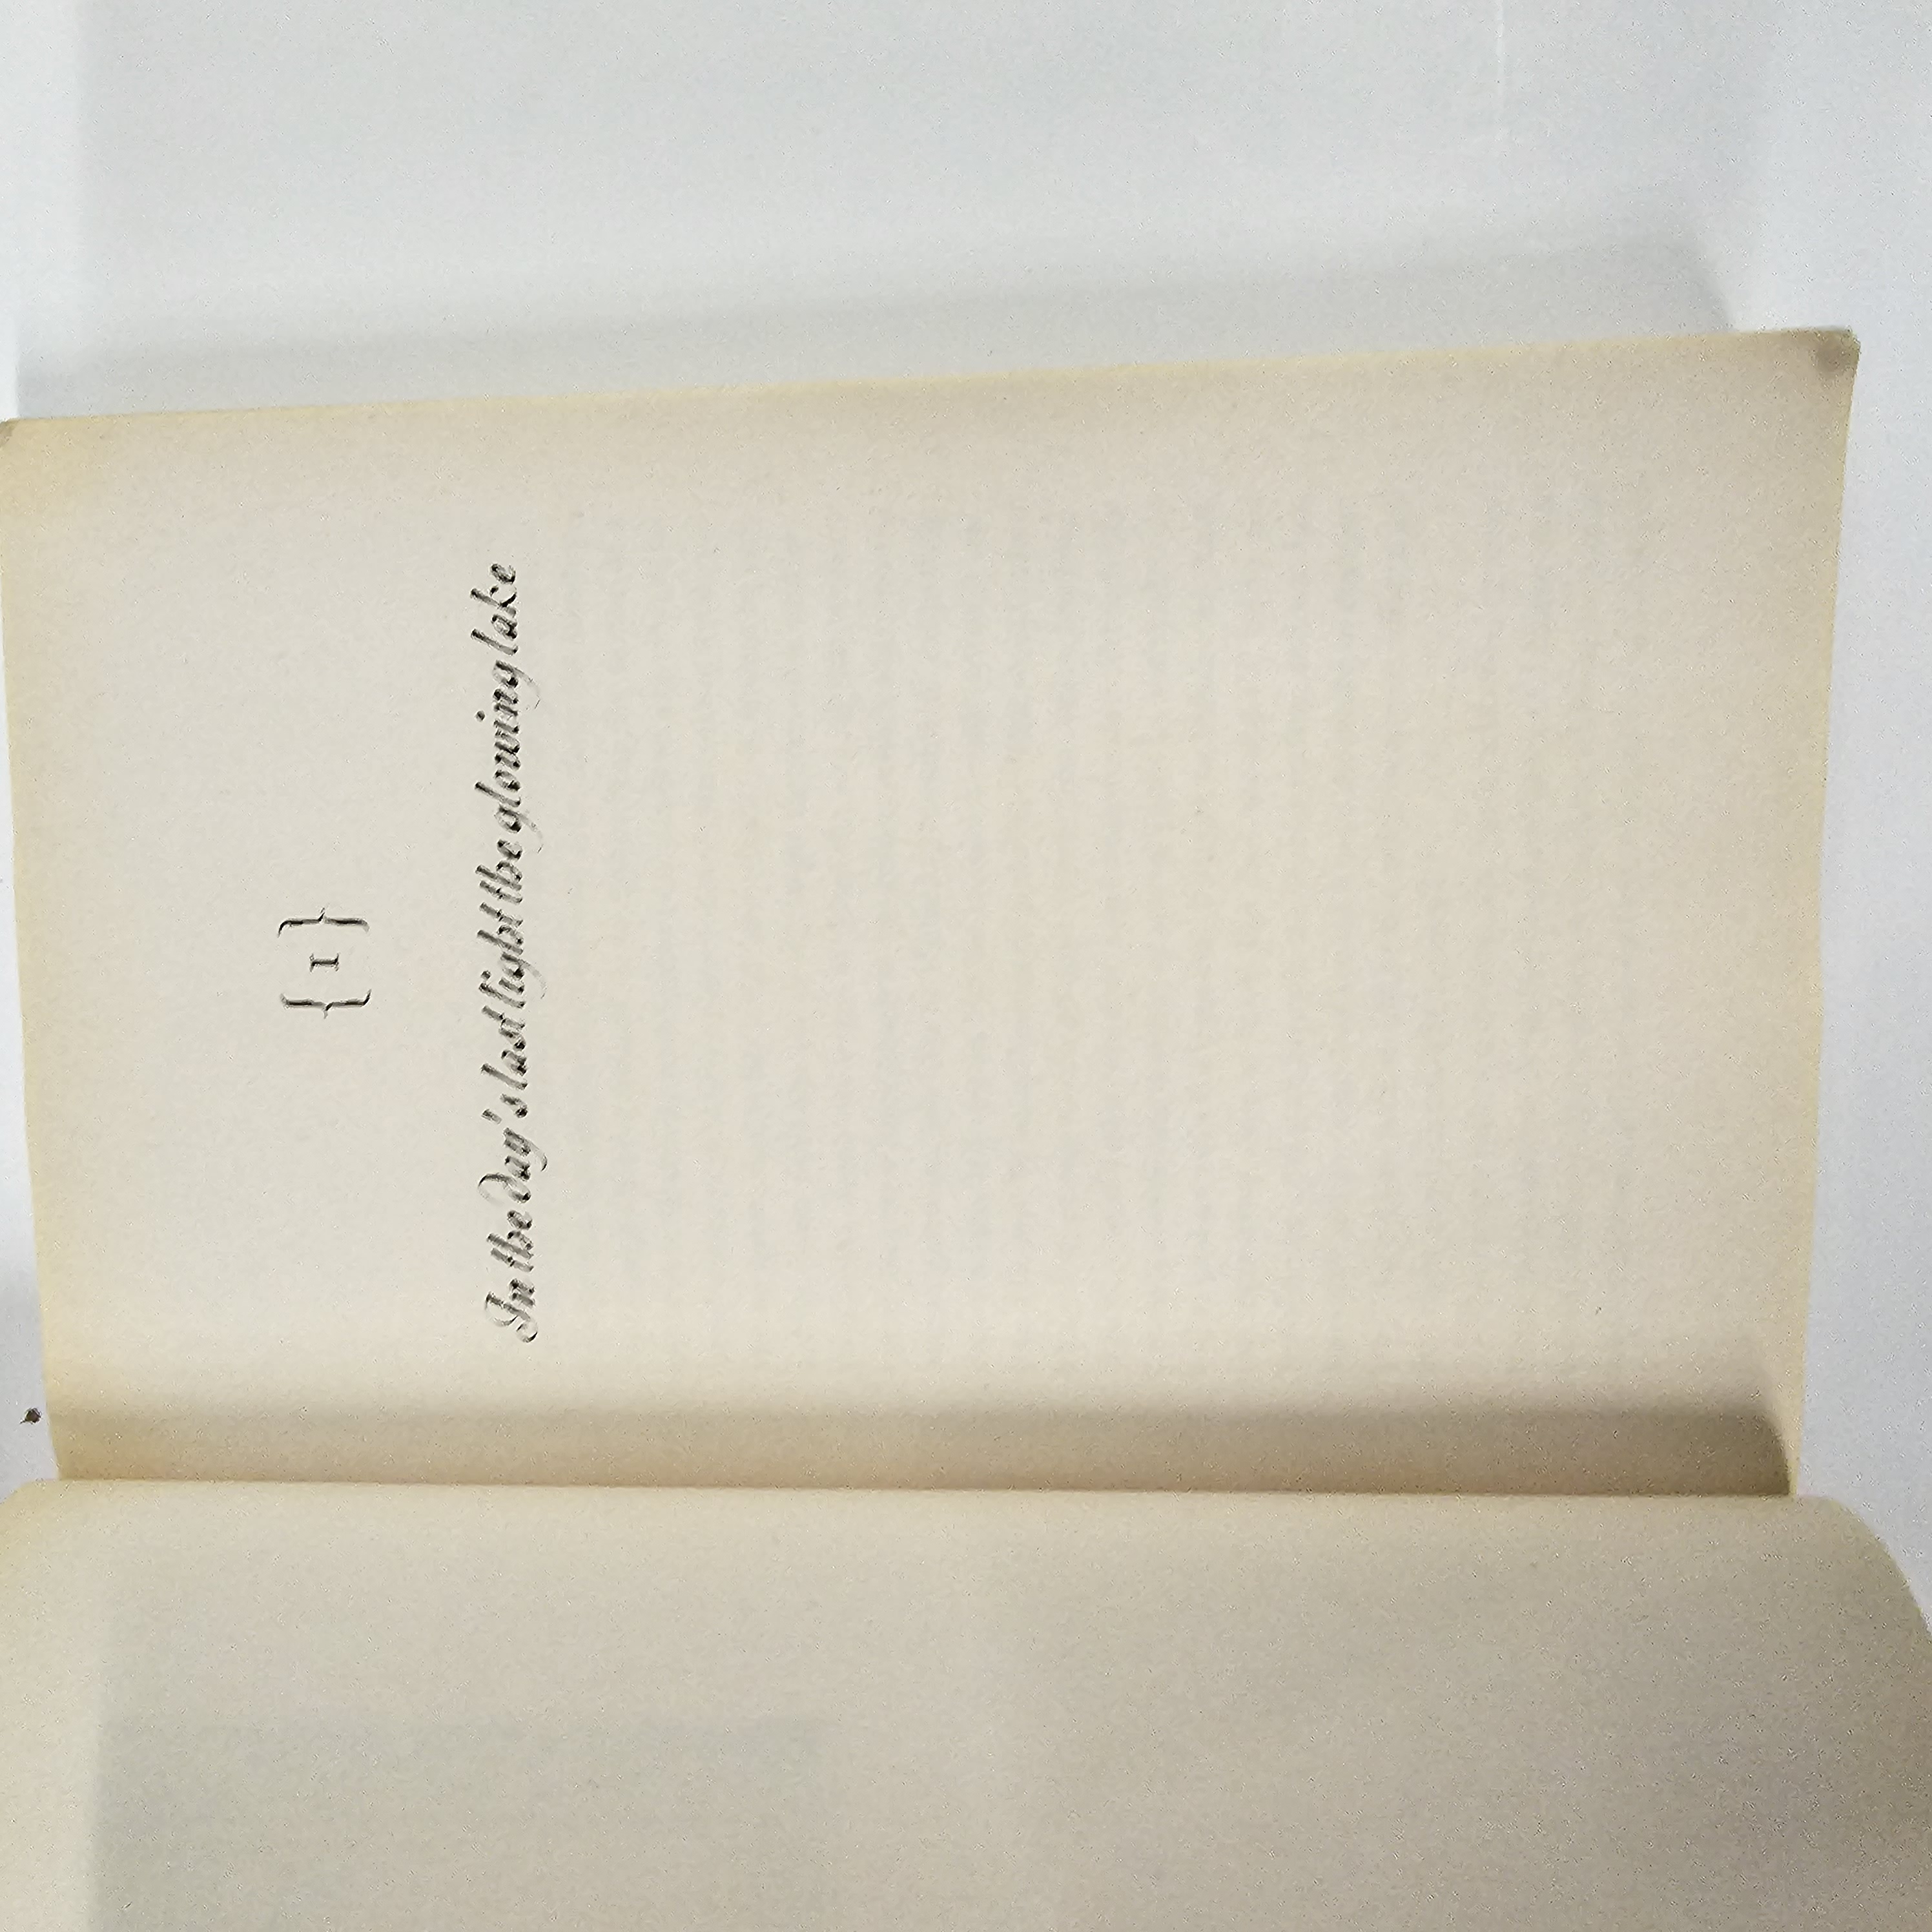 { I }
In the day's last light the glowing lake